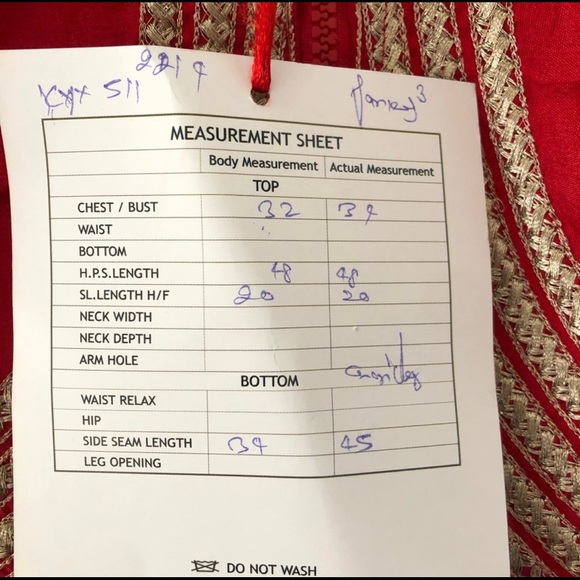 2219
511
MEASUREMENT SHEET
Body Measurement Actual Measurement
TOP
CHEST / BUST 32 34
WAIST
BOTTOM
H.P.S.LENGTH 48 48
SL.LENGTH H/F 20 20
NECK WIDTH
NECK DEPTH
ARM HOLE
BOTTOM
WAIST RELAX
HIP
SIDE SEAM LENGTH 34 45
LEG OPENING
DO NOT WASH